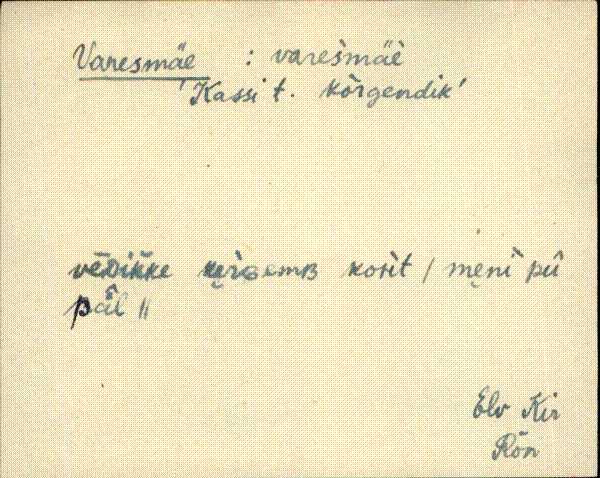 Varesmäe : varèsmäè
'Kassi t. kõrgendik'
vēDikke kęrGemB kosìt / męnì pū
pǟl ||
Elv Kir
Rõn